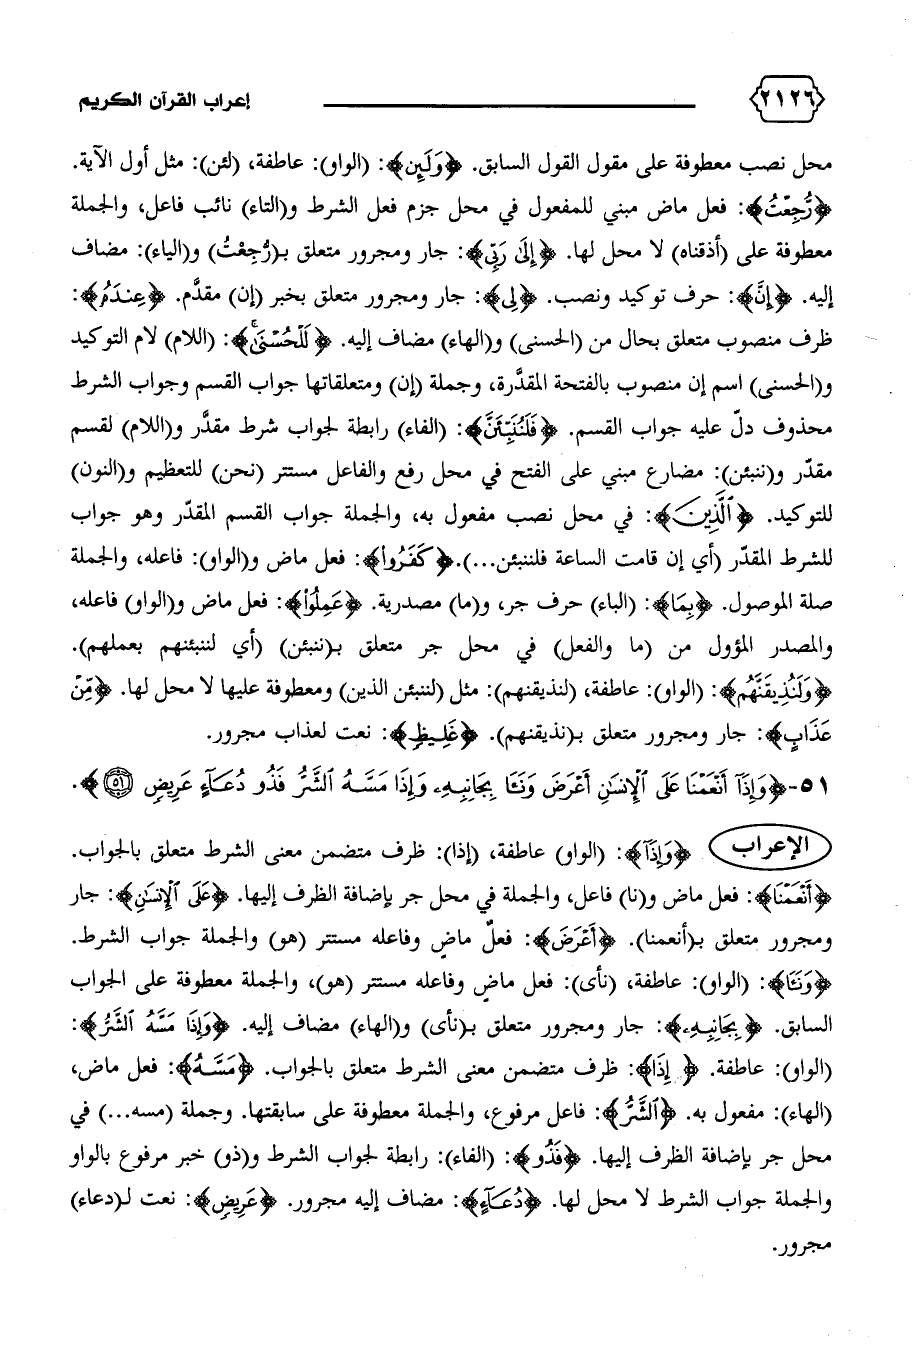 ٢١٢٦
إعراب القرآن الكريم
محل نصب معطوفة على مقول القول السابق. ﴿وَلَئِن﴾: (الواو): عاطفة، (لئن): مثل أول الآية.
﴿رُّجِعْتُ﴾: فعل ماض مبني للمفعول في محل جزم فعل الشرط و(التاء) نائب فاعل، والجملة
معطوفة على (أذقناه) لا محل لها. ﴿إِلَىٰ رَبِّىٓ﴾: جار ومجرور متعلق بـ(رُّجِعْتُ) و(الياء): مضاف
إليه. ﴿إِنَّ﴾: حرف توكيد ونصب. ﴿لِى﴾: جار ومجرور متعلق بخبر (إن) مقدَّم. ﴿عِندَهُۥ﴾:
ظرف منصوب متعلق بحال من (الحسنى) و(الهاء) مضاف إليه. ﴿لَلْحُسْنَىٰ﴾: (اللام) لام التوكيد
و(الحسنى) اسم إن منصوب بالفتحة المقدَّرة، وجملة (إن) ومتعلقاتها جواب القسم وجواب الشرط
محذوف دلّ عليه جواب القسم. ﴿فَلَنُنَبِّئَنَّ﴾: (الفاء) رابطة لجواب شرط مقدَّر و(اللام) لقسم
مقدّر و(ننبئن): مضارع مبني على الفتح في محل رفع والفاعل مستتر (نحن) للتعظيم و(النون)
للتوكيد. ﴿ٱلَّذِينَ﴾: في محل نصب مفعول به، والجملة جواب القسم المقدّر وهو جواب
للشرط المقدّر (أي إن قامت الساعة فلننبئن...).﴿كَفَرُوا۟﴾: فعل ماض و(الواو): فاعله، والجملة
صلة الموصول. ﴿بِمَا﴾: (الباء) حرف جر، و(ما) مصدرية. ﴿عَمِلُوا۟﴾: فعل ماض و(الواو) فاعله،
والمصدر المؤول من (ما والفعل) في محل جر متعلق بـ(ننبئن) (أي لننبئنهم بعملهم).
﴿وَلَنُذِيقَنَّهُم﴾: (الواو): عاطفة، (لنذيقنهم): مثل (لننبئن الذين) ومعطوفة عليها لا محل لها. ﴿مِّنْ
عَذَابٍ﴾: جار ومجرور متعلق بـ(نذيقنهم). ﴿غَلِيظٍ﴾: نعت لعذاب مجرور.
٥١-﴿وَإِذَآ أَنْعَمْنَا عَلَى ٱلْإِنسَٰنِ أَعْرَضَ وَنَـَٔا بِجَانِبِهِۦ وَإِذَا مَسَّهُ ٱلشَّرُّ فَذُو دُعَآءٍ عَرِيضٍ ٥١﴾.
الإعراب ﴿وَإِذَآ﴾: (الواو) عاطفة، (إذا): ظرف متضمن معنى الشرط متعلق بالجواب.
﴿أَنْعَمْنَا﴾: فعل ماض و(نا) فاعل، والجملة في محل جر بإضافة الظرف إليها. ﴿عَلَى ٱلْإِنسَٰنِ﴾: جار
ومجرور متعلق بـ(أنعمنا). ﴿أَعْرَضَ﴾: فعلٌ ماضٍ وفاعله مستتر (هو) والجملة جواب الشرط.
﴿وَنَـَٔا﴾: (الواو): عاطفة، (نأى): فعل ماضٍ وفاعله مستتر (هو)، والجملة معطوفة على الجواب
السابق. ﴿بِجَانِبِهِۦ﴾: جار ومجرور متعلق بـ(نأى) و(الهاء) مضاف إليه. ﴿وَإِذَا مَسَّهُ ٱلشَّرُّ﴾:
(الواو): عاطفة. ﴿إِذَا﴾: ظرف متضمن معنى الشرط متعلق بالجواب. ﴿مَسَّهُ﴾: فعل ماض،
(الهاء): مفعول به. ﴿ٱلشَّرُّ﴾: فاعل مرفوع، والجملة معطوفة على سابقتها. وجملة (مسه...) في
محل جر بإضافة الظرف إليها. ﴿فَذُو﴾: (الفاء): رابطة لجواب الشرط و(ذو) خبر مرفوع بالواو
والجملة جواب الشرط لا محل لها. ﴿دُعَآءٍ﴾: مضاف إليه مجرور. ﴿عَرِيضٍ﴾: نعت لـ(دعاء)
مجرور.